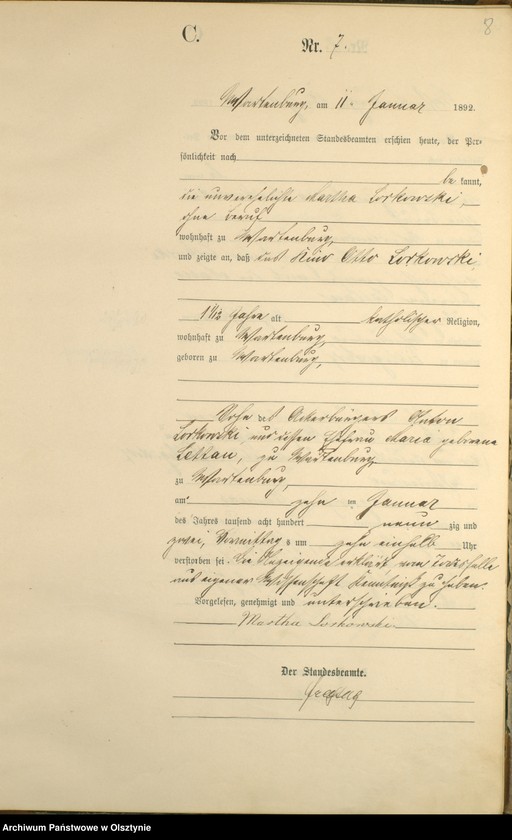 8
C.
Nr. 7.
Wartenburg, am 11. Januar 1892.
Vor dem unterzeichneten Standesbeamten erschien heute, der Per-
sönlichkeit nach
be kannt,
die unverehelichte Martha Lorkowski,
ohne Beruf
wohnhaft zu Wartenburg,
und zeigte an, daß das Kind Otto Lorkowski
1 1/12 Jahre alt katholischer Religion,
wohnhaft zu Wartenburg,
geboren zu Wartenburg,
Sohn des Ackerbürgers Anton
Lorkowski und dessen Ehefrau Maria geborene
Lettau, zu Wartenburg
zu Wartenburg,
am zehn ten Januar
des Jahres tausend acht hundert neun zig und
zwei, Vormittags um zehn einhalb Uhr
verstorben sei. Die Anzeigende erklärt vom Todesfalle
aus eigener Wissenschaft Kenntniß zu haben.
Vorgelesen, genehmigt und unterschrieben.
Martha Lorkowski
Der Standesbeamte.
Archiwum Państwowe w Olsztynie